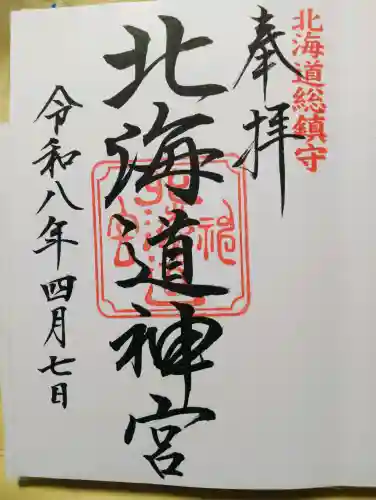 北海道総鎮守
奉拝
北海道神宮
令和八年四月七日